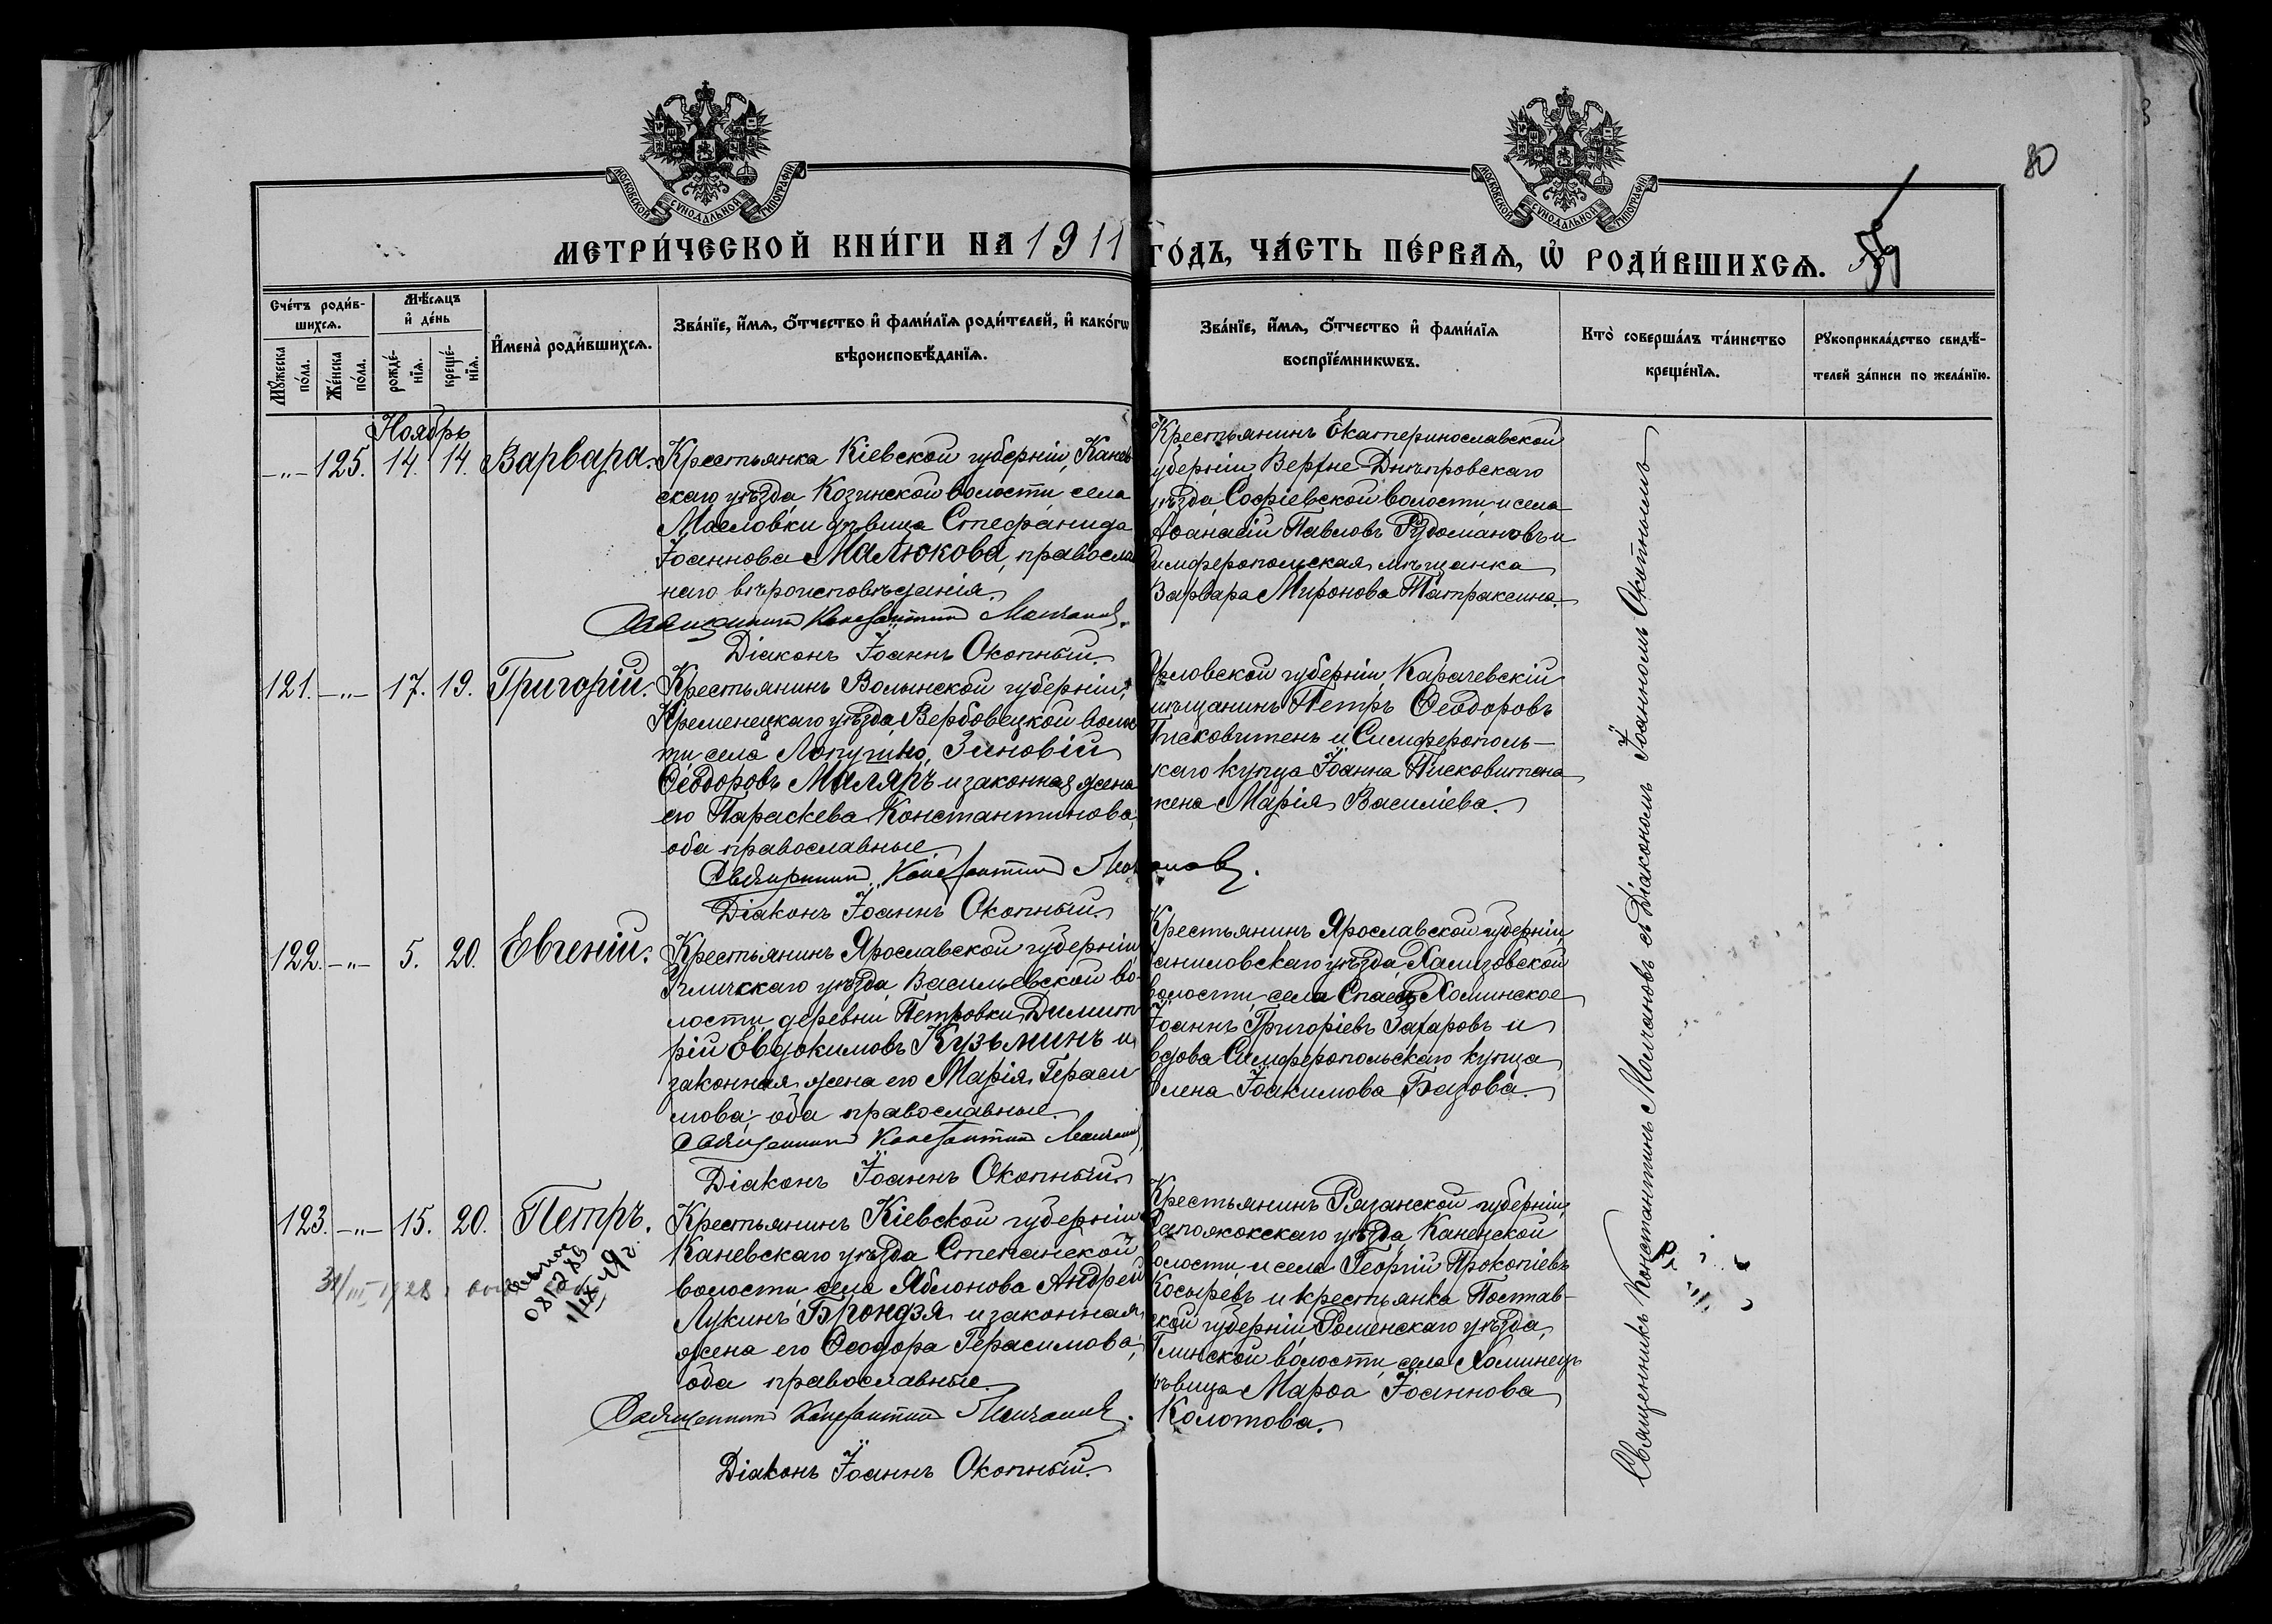 МОСКОВСКОЙ СУНОДАЛЬНОЙ ТИПОГРАФІИ
МОСКОВСКОЙ СУНОДАЛЬНОЙ ТИПОГРАФІИ
80
МЕТРИ́ЧЕСКОЙ КНИ́ГИ НА 1911
ГО́ДЪ, ЧА́СТЬ ПЕ́РВАѦ, Ѡ҆ РОДИ́ВШИХСѦ.
59
Сче́тъ роди́вшихсѧ.
Мꙋ́жеска по́ла.
Же́нска по́ла.
Мѣ́сѧцъ и҆ де́нь
рожде́нїѧ.
креще́нїѧ.
И҆мена̀ роди́вшихсѧ.
Зва́нїе, и҆́мѧ, ѻ҆́тчество и҆ фами́лїѧ роди́телей, и҆ како́гѡ
вѣроисповѣ́данїѧ.
Зва́нїе, и҆́мѧ, ѻ҆́тчество и҆ фами́лїѧ
воспрїе́мникѡвъ.
Кто̀ соверша́лъ та́инство
креще́нїѧ.
Рꙋкоприкла́дство свидѣ́телей за́писи по жела́нїю.
Ноябрь
-"- 125. 14. 14. Варвара.
Крестьянка Кіевской губерніи, Канев
скаго уѣзда, Козинской волости, села
Масловки дѣвица Стефанида
Іоаннова Малюкова, правосла
наго вѣроисповѣданія.
Священникъ Константинъ Молчановъ.
Діаконъ Іоаннъ Окопный.
Крестьянинъ Екатеринославской
губерніи, Верхне-Днѣпровскаго
уѣзда, Софіевской волости и села
Аѳанасій Павловъ и
Симферопольская мѣщанка
Варвара Миронова
121. -"- 17. 19. Григорій.
Крестьянинъ Волынской губерніи,
Кременецкаго уѣзда, Вербовецкой волос
ти, села Лопушно, Зиновій
Ѳеодоровъ Маляръ и законная жена
его Параскева Константинова,
оба православные.
Священникъ Константинъ Молчановъ.
Діаконъ Іоаннъ Окопный.
Орловской губерніи, Карачевскій
мѣщанинъ Петръ Ѳеодоровъ
и Симферополь-
скаго купца Іоанна
жена Марія Василіева.
122. -"- 5. 20. Евгеній.
Крестьянинъ Ярославской губерніи,
уѣзда, Васильевской во-
лости, деревни Петровки, Димит
рій Евдокимовъ Кузьминъ и
законная жена его Марія Гераси
мова; оба православные.
Священникъ Константинъ Молчановъ.
Діаконъ Іоаннъ Окопный.
Крестьянинъ Ярославской губерніи,
Даниловскаго уѣзда,
волости, села
Іоаннъ Григоріевъ Захаровъ и
вдова Симферопольскаго купца
Елена Іоакимова
123. -"- 15. 20. Петръ.
31/III 1928
081289
1/IX 49 г.
Крестьянинъ Кіевской губерніи,
Каневскаго уѣзда, Степанской
волости, села Яблонова Андрей
Лукинъ Брондзя и законная
жена его Ѳеодора Герасимова;
оба православные.
Священникъ Константинъ Молчановъ.
Діаконъ Іоаннъ Окопный.
Крестьянинъ Рязанской губерніи,
уѣзда,
волости и села Георгій Прокопіевъ
Косыревъ и крестьянка Полтав-
ской губерніи, Роменскаго уѣзда,
Глинской волости, села
дѣвица Марѳа Іоаннова
Колотова.
Священникъ Константинъ Молчановъ съ Діакономъ Іоанномъ Окопнымъ